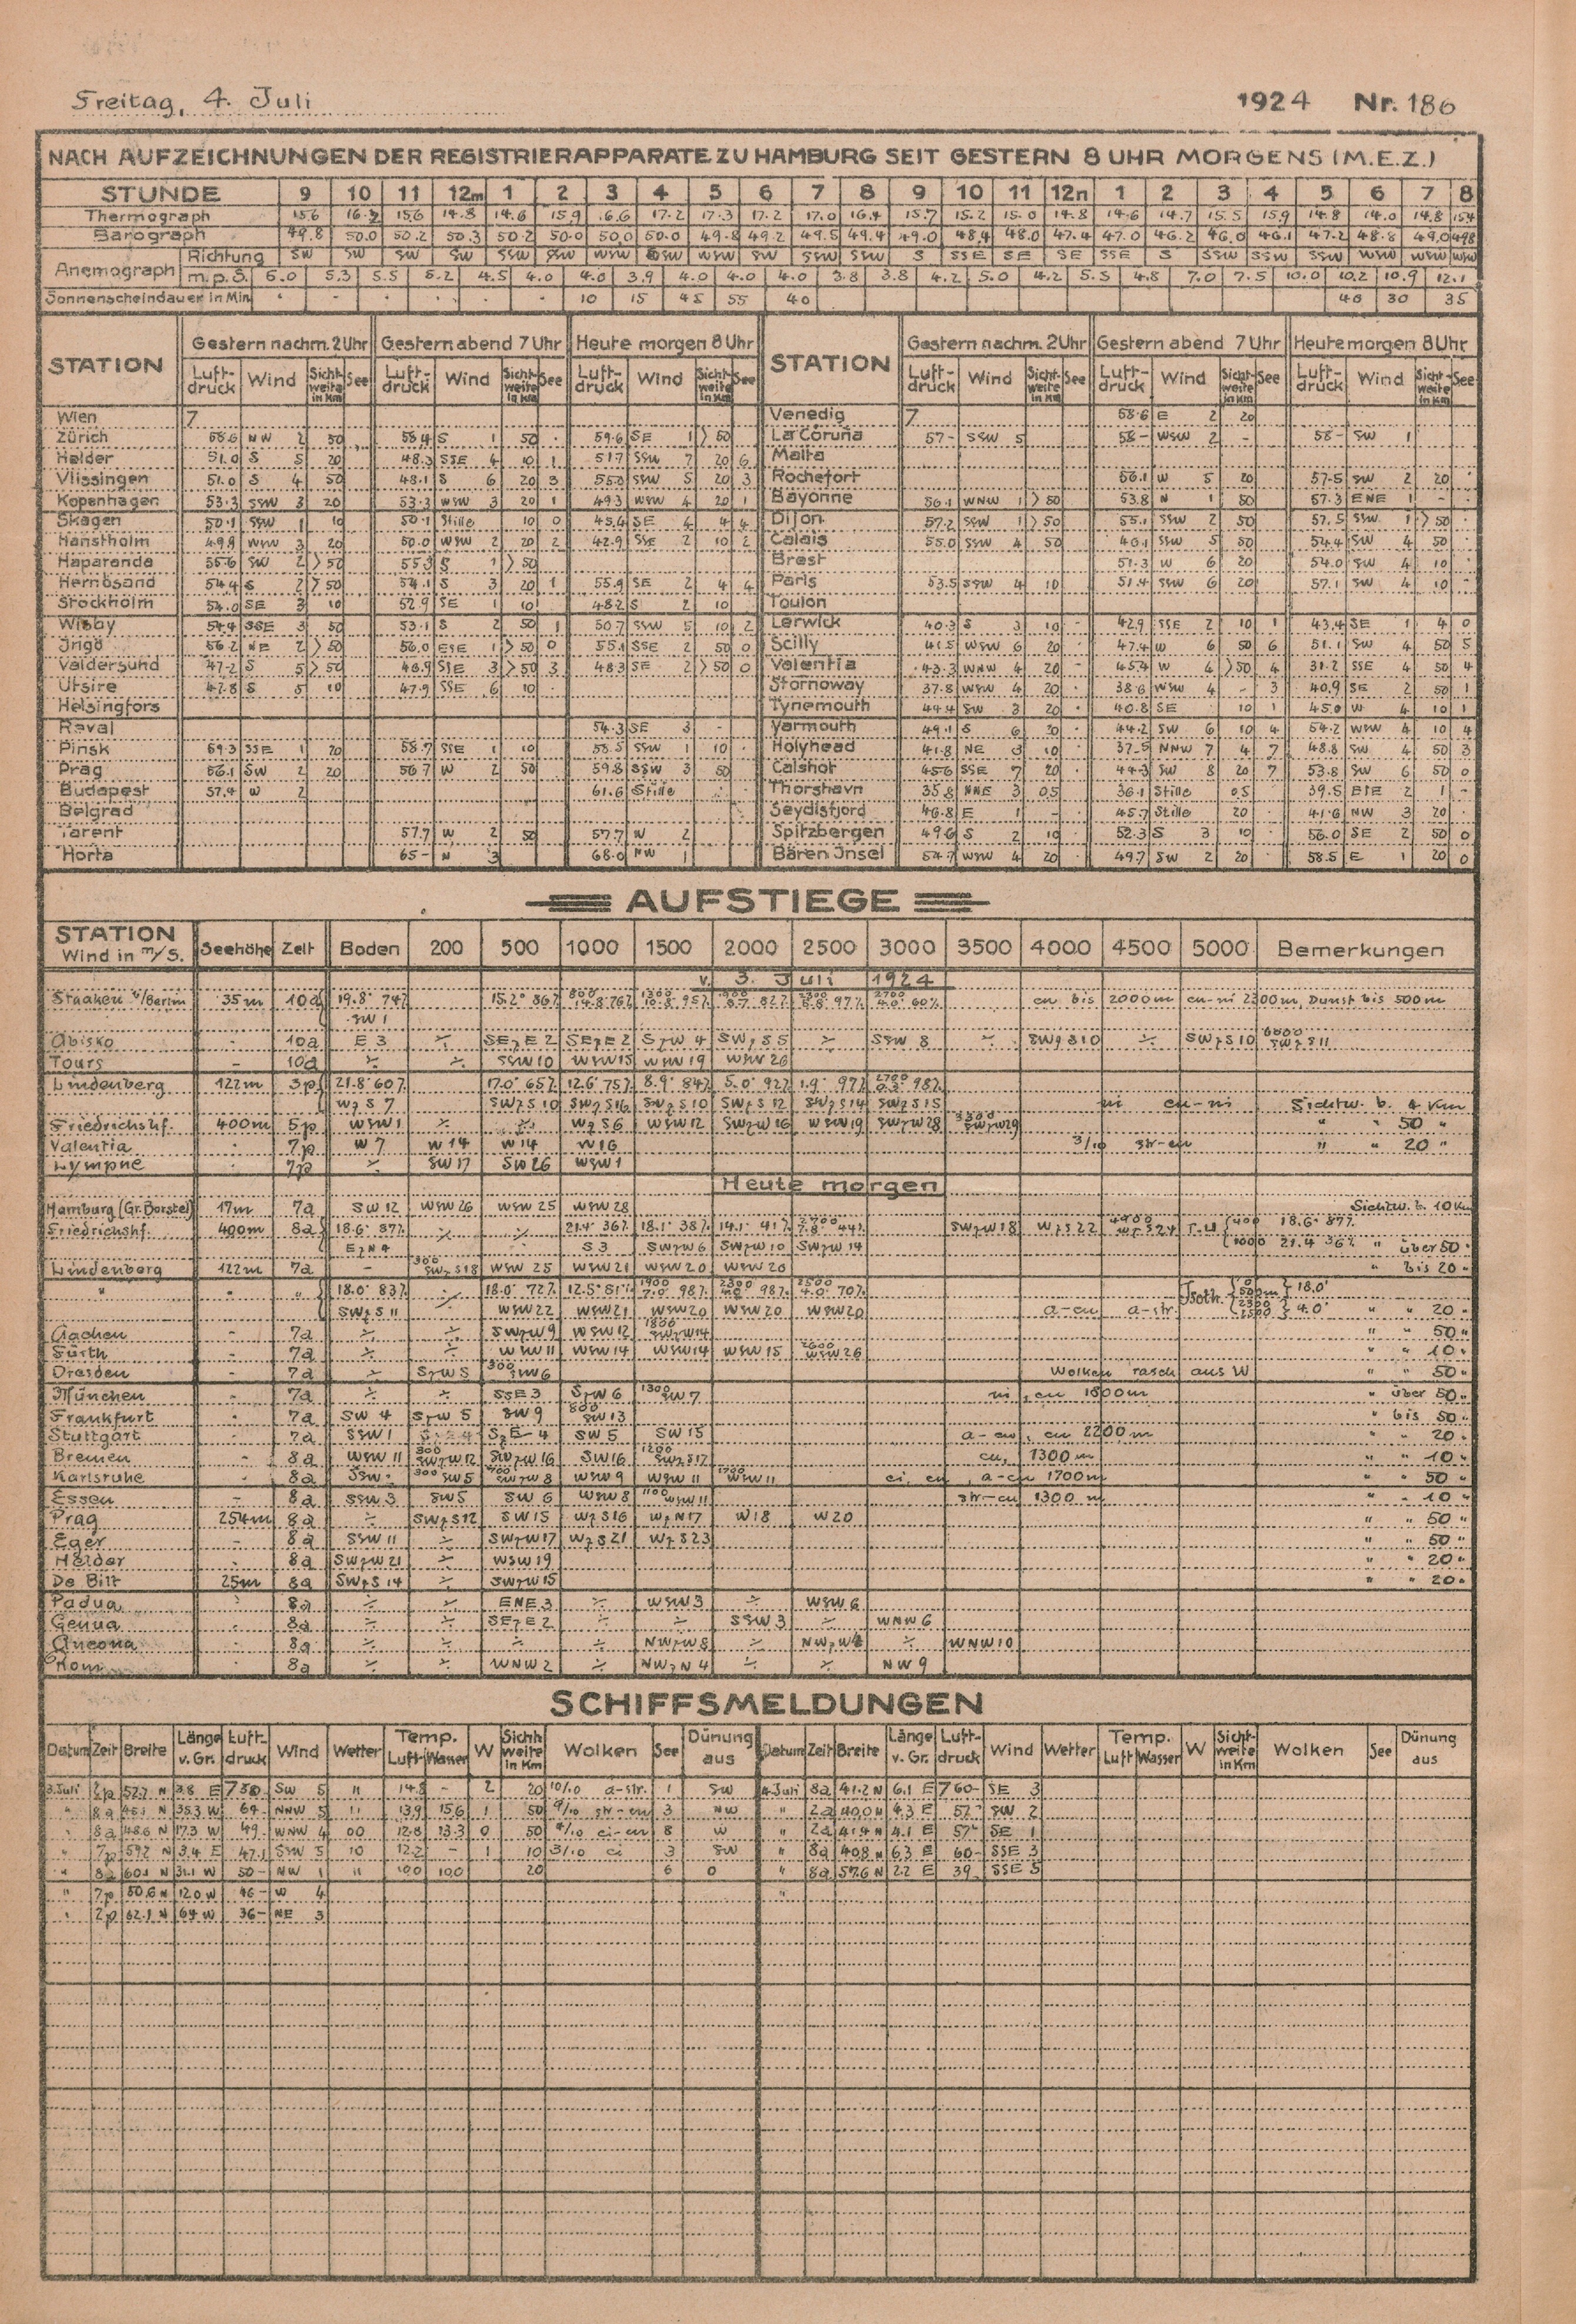 Freitag, 4. Juli 1924 Nr. 186
NACH AUFZEICHNUNGEN DER REGISTRIERAPPARATE ZU HAMBURG SEIT GESTERN 8 UHR MORGENS (M.E.Z.)
STUNDE 9 10 11 12m 1 2 3 4 5 6 7 8 9 10 11 12n 1 2 3 4 5 6 7 8
Thermograph 15.6 16.2 15.6 14.8 14.6 15.9 .6.6 17.2 17.3 17.2 17.0 16.4 15.7 15.2 15.0 14.8 14.6 14.7 15.5 15.9 14.8 14.0 14.8 15.4
Barograph 49.8 50.0 50.2 50.3 50.2 50.0 50.0 50.0 49.8 49.2 49.5 49.4 49.0 48.4 48.0 47.4 47.0 46.2 46.0 46.1 47.2 48.8 49.0 49.8
Anemograph Richtung SW SW SW SW SSW SSW WSW SSW WSW SW SSW SSW S SSE SE SE SSE S SSW SSW SSW WSW WSW WSW
m.p.S. 6.0 5.3 5.5 5.2 4.5 4.0 4.0 3.9 4.0 4.0 4.0 3.8 3.8 4.2 5.0 4.2 5.5 4.8 7.0 7.5 10.0 10.2 10.9 12.1
Sonnenscheindauer in Min. . - - . . - 10 15 45 55 40 40 30 35
STATION Gestern nachm. 2 Uhr Gestern abend 7 Uhr Heute morgen 8 Uhr STATION Gestern nachm. 2 Uhr Gestern abend 7 Uhr Heute morgen 8 Uhr
Luft-druck Wind Sicht-weite in Km See Luft-druck Wind Sicht-weite in Km See Luft-druck Wind Sicht-weite in Km See Luft-druck Wind Sicht-weite in Km See Luft-druck Wind Sicht-weite in Km See Luft-druck Wind Sicht-weite in Km See
Wien 7 Venedig 7 58.6 E 2 20
Zürich 58.6 NW 2 50 58.4 S 1 50 . 59.6 SE 1 > 50 La Coruña 57- SSW 5 58- WSW 2 - 58- SW 1
Helder 51.0 S 5 20 48.3 SSE 4 10 1 51.7 SSW 7 20 6 Malta
Vlissingen 51.0 S 4 50 48.1 S 6 20 3 55.0 SSW 5 20 3 Rochefort 56.1 W 5 20 57.5 SW 2 20
Kopenhagen 53.3 SSW 3 20 53.3 WSW 3 20 1 49.3 WSW 4 20 1 Bayonne 56.1 WNW 1 > 50 53.8 N 1 50 57.3 ENE 1 - -
Skagen 50.1 SSW 1 10 50.1 Stille 10 0 45.4 SE 4 4 4 Dijon 57.2 SSW 1 > 50 55.1 SSW 2 50 57.5 SSW 1 > 50 .
Hanstholm 49.9 WSW 3 20 50.0 WSW 2 20 2 42.9 SSE 2 10 2 Calais 55.0 SSW 4 50 46.1 SSW 5 50 54.4 SW 4 50 .
Haparanda 55.6 SW 2 > 50 55.3 S 1 > 50 Brest 51.3 W 6 20 54.0 SW 4 10
Hernösand 54.4 S 2 > 50 54.1 S 3 20 1 55.9 SE 2 4 4 Paris 53.5 SSW 4 10 51.4 SSW 6 20 57.1 SW 4 10
Stockholm 54.0 SE 3 10 52.9 SE 1 10 48.2 S 2 10 Toulon
Wisby 54.4 SSE 3 50 53.1 S 2 50 1 50.7 SSW 5 10 2 Lerwick 40.3 S 3 10 - 42.9 SSE 2 10 1 43.4 SE 1 4 0
Ingö 56.2 NE 2 > 50 56.0 ESE 1 > 50 0 55.1 SSE 2 50 0 Scilly 41.5 WSW 6 20 47.4 W 6 50 6 51.1 SW 4 50 5
Valdersund 47.2 S 5 > 50 46.9 SSE 3 > 50 3 48.3 SE 2 > 50 0 Valentia 43.3 WNW 4 20 - 45.4 W 4 > 50 4 31.2 SSE 4 50 4
Utsire 47.8 S 5 10 47.9 SSE 6 10 . Stornoway 37.8 WSW 4 20 . 38.6 WSW 4 - 3 40.9 SE 2 50 1
Helsingfors Tynemouth 44.4 SW 3 20 . 40.8 SE 10 1 45.0 W 4 10 1
Reval 54.3 SE 3 - Yarmouth 49.1 S 6 20 . 44.2 SW 6 10 4 54.2 WSW 4 10 4
Pinsk 59.3 SSE 1 20 58.7 SSE 1 10 58.5 SSW 1 10 Holyhead 41.8 NE 3 10 . 37.5 NNW 7 4 7 48.8 SW 4 50 3
Prag 56.1 SW 2 20 56.7 W 2 50 59.8 SSW 3 50 Calshot 45.6 SSE 7 20 . 44.3 SW 8 20 7 53.8 SW 6 50 0
Budapest 57.4 W 2 61.6 Stille Thorshavn 35.8 NNE 3 0.5 36.1 Stille 0.5 39.5 ESE 2 1 -
Belgrad Seydisfjord 46.8 E 1 - 45.7 Stille 20 41.6 NW 3 20
Tarent 57.7 W 2 50 57.7 W 2 Spitzbergen 49.6 S 2 10 52.3 S 3 10 56.0 SE 2 50 0
Horta 65- N 3 68.0 NW 1 Bären Insel 54.7 WSW 4 20 49.7 SW 2 20 58.5 E 1 20 0
AUFSTIEGE
STATION Wind in m/S. Seehöhe Zeit Boden 200 500 1000 1500 2000 2500 3000 3500 4000 4500 5000 Bemerkungen
v. 3. Juli 1924
Staaken b/Berlin 35m 10a 19.8° 74% 15.2° 86% 800 14.8 76% 1300 10.8 95% 1900 8.7 82% 2300 5.8 97% 2700 4.0° 60% cu bis 2000m cu-ni 2300m, Dunst bis 500m
SW 1
Abisko - 10a E 3 ÷ SEzE 2 SEzE 2 SzW 4 SWzS 5 ÷ SSW 8 ÷ SWzS 10 ÷ SWzS 10 6000 SWzS 11
Tours - 10a ÷ ÷ SSW 10 WSW 15 WSW 19 WSW 26
Lindenberg 122m 3p 21.8° 60% 17.0° 65% 12.6° 75% 8.9° 84% 5.0° 92% 1.9° 97% 2700 0.3° 98%
WzS 7 SWzS 10 SWzS 16 SWzS 10 SWzS 12 SWzS 14 SWzS 15 ni cu-ni Sichtw. b. 4 Km
Friedrichshf. 400m 5p WSW 1 ÷ ÷ WzS 6 WSW 12 SWzW 16 WSW 19 SWzW 28 3300 SWzW 29 " " 50 "
Valentia . 7p W 7 W 14 W 14 W 16 3/10 str-cu " " 20 "
Lympne 7p ÷ SW 17 SW 26 WSW 1
Heute morgen
Hamburg (Gr. Borstel) 17m 7a SW 12 WSW 26 WSW 25 WSW 28 Sichtw. b. 10 Km
Friedrichshf. 400m 8a 18.6° 87% ÷ ÷ 21.4° 36% 18.1° 38% 14.1° 41% 2700 7.8° 44% SWzW 18 WzS 22 4400 WzS 24 T-U 400 18.6° 87%
EzN 4 S 3 SWzW 6 SWzW 10 SWzW 14 1000 21.4 36% " über 50 "
Lindenberg 122m 7a - 300 SWzS 18 WSW 25 WSW 21 WSW 20 WSW 20 " bis 20 "
" " " 18.0° 83% ÷ 18.0° 72% 12.5° 81% 1900 7.0° 98% 2300 4.0° 98% 2500 4.0° 70% Isoth. 0 500m 18.0°
SWzS 11 WSW 22 WSW 21 WSW 20 WSW 20 WSW 20 a-cu a-str. 2300 2500 4.0° " " 20 "
Aachen - 7a ÷ ÷ SWzW 9 WSW 12 1800 SWzW 14 " " 50 "
Fürth - 7a ÷ ÷ WSW 11 WSW 14 WSW 14 WSW 15 2600 WSW 26 " " 10 "
Dresden - 7a ÷ SzW 5 300 SW 6 Wolken rasch aus W " " 50 "
München 7a ÷ ÷ SSE 3 SzW 6 1300 SW 7 ni, cu 1500m " über 50 "
Frankfurt . 7a SW 4 SzW 5 SW 9 800 SW 13 " bis 50 "
Stuttgart . 7a SSW 1 SzE 4 SzE- 4 SW 5 SW 15 a-cu, cu 2200 m " " 20 "
Bremen . 8a WSW 11 300 SWzW 12 SWzW 16 SW 16 1200 SWzS 17 cu, 1300 m " " 10 "
Karlsruhe . 8a SSW . 300 SW 5 700 SWzW 8 WSW 9 WSW 11 1700 WSW 11 ci, cu, a-cu 1700m " " 50 "
Essen - 8a SSW 3 SW 5 SW 6 WSW 8 1100 WSW 11 str-cu 1300 m " " 10 "
Prag 254m 8a ÷ SWzS 12 SW 15 WzS 16 WzN 17 W 18 W 20 " " 50 "
Eger - 8a SSW 11 ÷ SWzW 17 WzS 21 WzS 23 " " 50 "
Helder . 8a SWzW 21 ÷ WSW 19 " " 20 "
De Bilt 25m 8a SWzS 14 ÷ SWzW 15 " " 20 "
Padua . 8a ÷ ÷ ENE 3 ÷ WSW 3 ÷ WSW 6
Genua . 8a ÷ ÷ SEzE 2 ÷ ÷ SSW 3 ÷ WNW 6
Ancona . 8a ÷ ÷ ÷ ÷ NWzW 8 ÷ NWzW ÷ WNW 10
Rom . 8a ÷ ÷ WNW 2 ÷ NWzN 4 ÷ ÷ NW 9
SCHIFFSMELDUNGEN
Datum Zeit Breite Länge v. Gr. Luft-druck Wind Wetter Temp. Luft Wasser W Sicht-weite in Km Wolken See Dünung aus Datum Zeit Breite Länge v. Gr. Luft-druck Wind Wetter Temp. Luft Wasser W Sicht-weite in Km Wolken See Dünung aus
3. Juli 2p 52.7 N 3.8 E 750 SW 5 11 14.8 - 2 20 10/10 a-str. 1 SW 4. Juli 8a 41.2 N 6.1 E 760- SE 3
" 8a 45.1 N 35.3 W 64- NNW 5 11 13.9 15.6 1 50 9/10 str-cu 3 NW " 2a 40.0 N 4.3 E 57- SW 2
" 8a 48.6 N 17.3 W 49. WNW 4 00 12.8 13.3 0 50 4/10 ci-cu 8 W " 2a 41.4 N 4.1 E 57- SE 1
" 7p 59.2 N 3.4 E 47.1 SSW 5 10 12.2 - 1 10 3/10 ci 3 SW " 8a 40.8 N 6.3 E 60- SSE 3
" 8a 60.1 N 31.1 W 50- NW 1 11 10.0 10.0 20 6 0 " 8a 57.6 N 2.2 E 39. SSE 5
" 7p 50.6 N 12.0 W 46- W 4 "
" 2p 62.1 N 6.4 W 36- NE 3